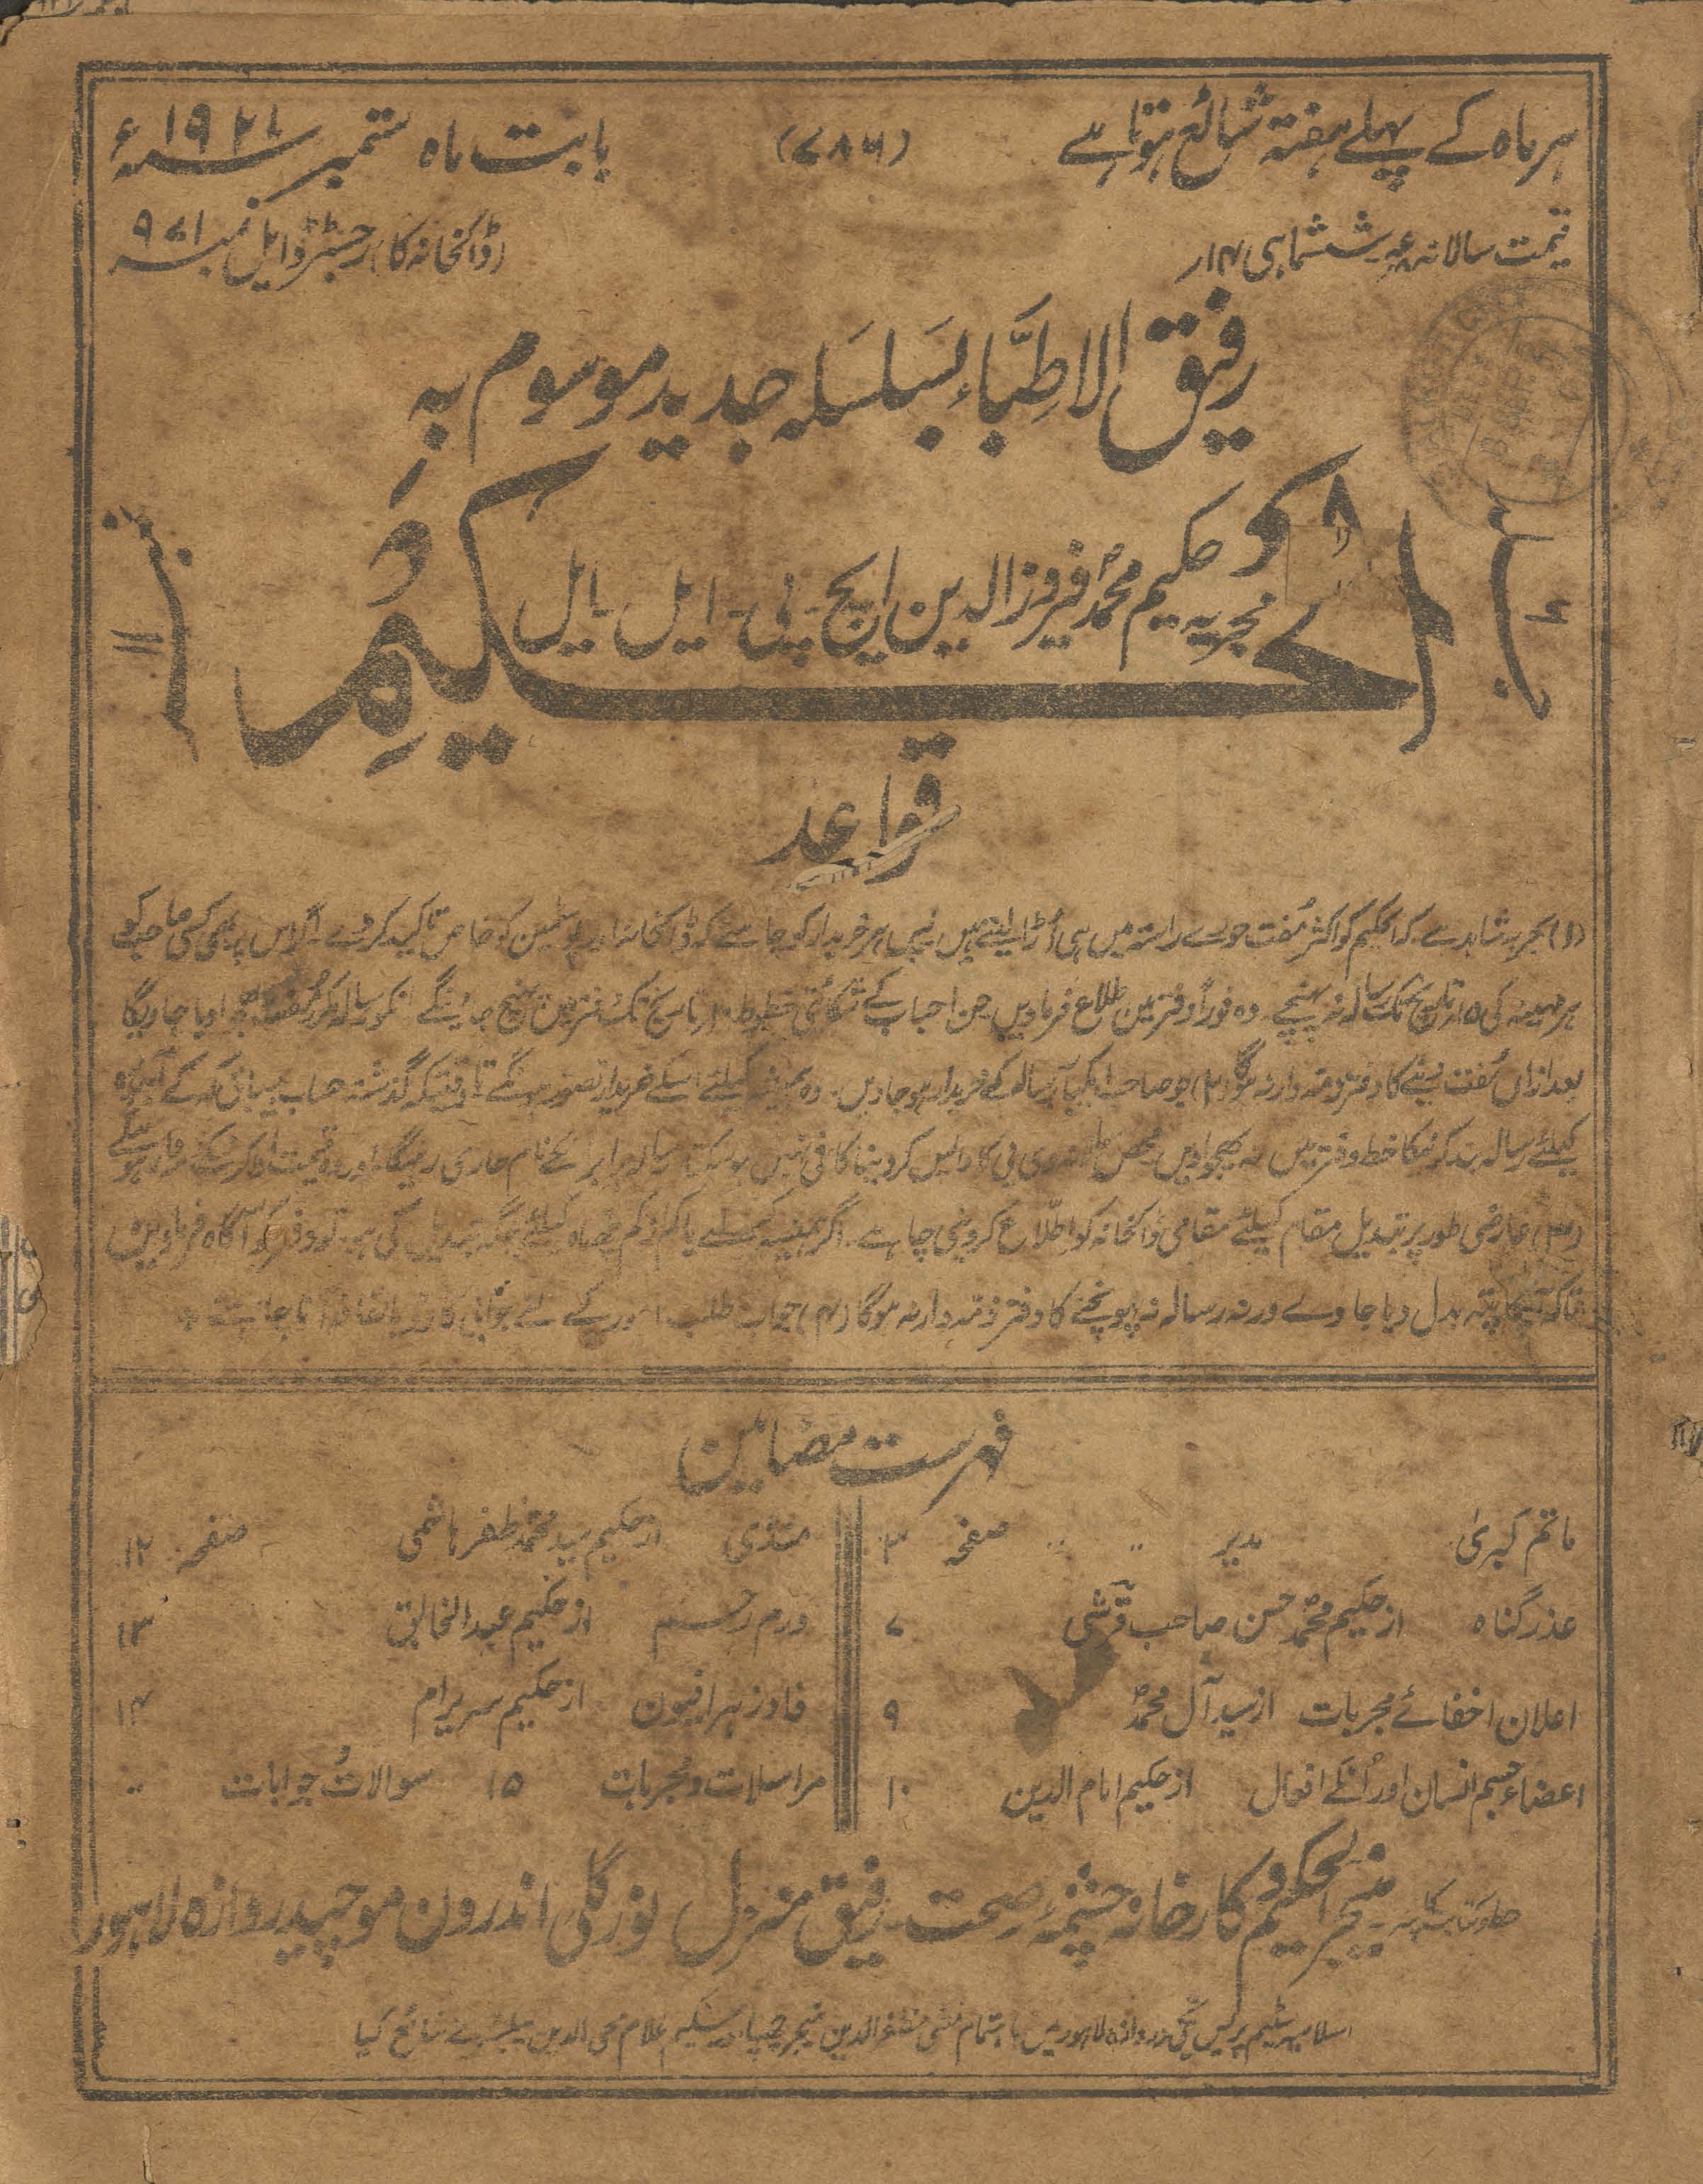 ہر ماہ کے پہلے ہفتہ شائع ہوتا ہے
(۷۸۶)
بابت ماہ ستمبر سنہ ۱۹۲۱ء
قیمت سالانہ ششماہی ۱۴؍
(ڈاکخانہ کا) رجسٹرڈ ایل نمبر ۹۷۱
رفیق الاطباء بسلسلہ جدید موسوم بہ
الحکیم
مجریہ حکیم محمد فیروز الدین ایچ - پی - ایل - ایل
جلد
نمبر ۱۱
قواعد
(۱) تجربہ شاہد ہے کہ الحکیم کو اکثر مفت خورے راستہ میں ہی اُڑا لیتے ہیں پس ہر خریدار کو چاہئے کہ ڈاکخانہ اور پوسٹمین کو خاص تاکید کر دے۔ اگر اس پر بھی کسی صاحب کو
ہر مہینہ کی ۱۵؍ تاریخ تک رسالہ نہ پہنچے۔ وہ فوراً دفتر میں اطلاع فرماویں جن احباب کے شکائتی خطوط تاریخ تک دفتر میں پہنچ جائینگے انکو رسالہ مکرر مفت بھجوا دیا جاویگا
بعد ازاں مفت بھیجنے کا دفتر ذمہ وار نہ ہوگا (۲) جو صاحب ایکبار رسالہ کے خریدار ہو جاویں۔ وہ ہمیشہ کیلئے اسکے خریدار تصور ہونگے تاوقتیکہ گذشتہ حساب بیباق کر کے آئندہ
کیلئے رسالہ بند کرنیکا خط دفتر میں نہ بھجوا دیں محض وی پی کا واپس کر دینا کافی نہیں رسالہ برابر انکے نام جاری رہیگا۔ اور وہ قیمت ادا کرنیکے
(۳) عارضی طور پر تبدیل مقام کیلئے مقامی ڈاکخانہ کو اطلاع کر دینی چاہئے۔ اگر ہمیشہ کے لئے یا کم از کم کیلئے جگہ تبدیل کی ہو۔ تو دفتر کو آگاہ فرماویں
تاکہ پتہ بدل دیا جاوے ورنہ رسالہ نہ پہونچنے کا دفتر ذمہ دار نہ ہوگا (۴) جواب طلب امور کے لئے جوابی کارڈ یا لفافہ آنا چاہئے
فہرست مضامین
ماتم کبریٰ مدیر صفحہ ۳
عذر گناہ از حکیم محمد حسن صاحب قرشی ۷
اعلان اخفائے مجربات از سید آل محمد ۹
اعضاء جسم انسان اور اُنکے افعال از حکیم امام الدین ۱۰
از حکیم سید محمد ظفر ہاشمی صفحہ ۱۲
ورم رحم از حکیم عبدالخالق ۱۳
فاد زہر افیون از حکیم سریرام ۱۴
مراسلات و مجربات ۱۵ سوالات و جوابات
منیجر الحکیم کارخانہ چشمۂ صحت رفیق منزل نور گلی اندرون موچیدروازہ لاہور
اسلامیہ سٹیم پریس لاہور میں باہتمام منشی مظفر الدین منیجر چھپا اور حکیم غلام محی الدین پبلشر نے شائع کیا